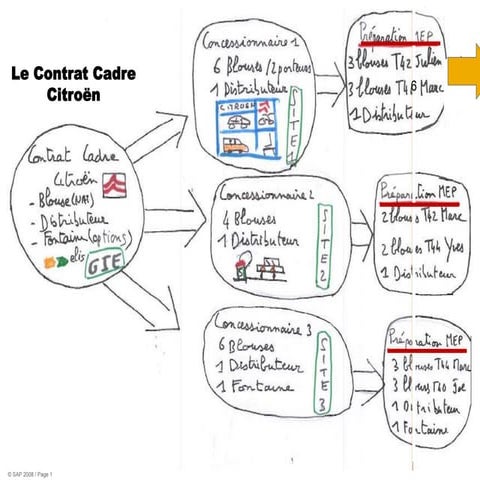 Le Contrat Cadre
Citroën
Contrat Cadre
Citroën
- Blouse (NAI)
- Distributeur
- Fontaine (options)
elis GIE
Concessionnaire 1
6 Blouses / 2 porteurs
1 Distributeur
CITROËN
SITE 1
Préparation MEP
3 blouses T42 Julien
3 blouses T48 Marc
1 Distributeur
Concessionnaire 2
4 Blouses
1 Distributeur
SITE 2
Préparation MEP
2 blouses T42 Marc
2 blouses T44 Yves
1 Distributeur
Concessionnaire 3
6 Blouses
1 Distributeur
1 Fontaine
SITE 3
Préparation MEP
3 blouses T44 Marc
3 blouses T40 Joe
1 Distributeur
1 Fontaine
© SAP 2008 / Page 1